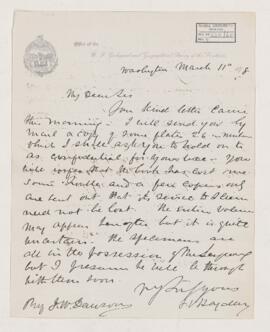 Office of the
U. S. Geological and Geographical Survey of the Territories
Washington March 11th 78
My Dear Sir
Your kind letter came
this morning. I will send you by
mail a copy of some plates
which I shall ask you to hold on to
as confidential for your use. You
that the book has cost me
some trouble and a few copies only
are sent out that its service to science
need not be lost. The entire volume
may appear but it is quite
uncertain. The specimens are
all in the possession of the Survey
but I presume he will be through
with them soon.
Truly yours
F V Hayden
J. W. Dawson